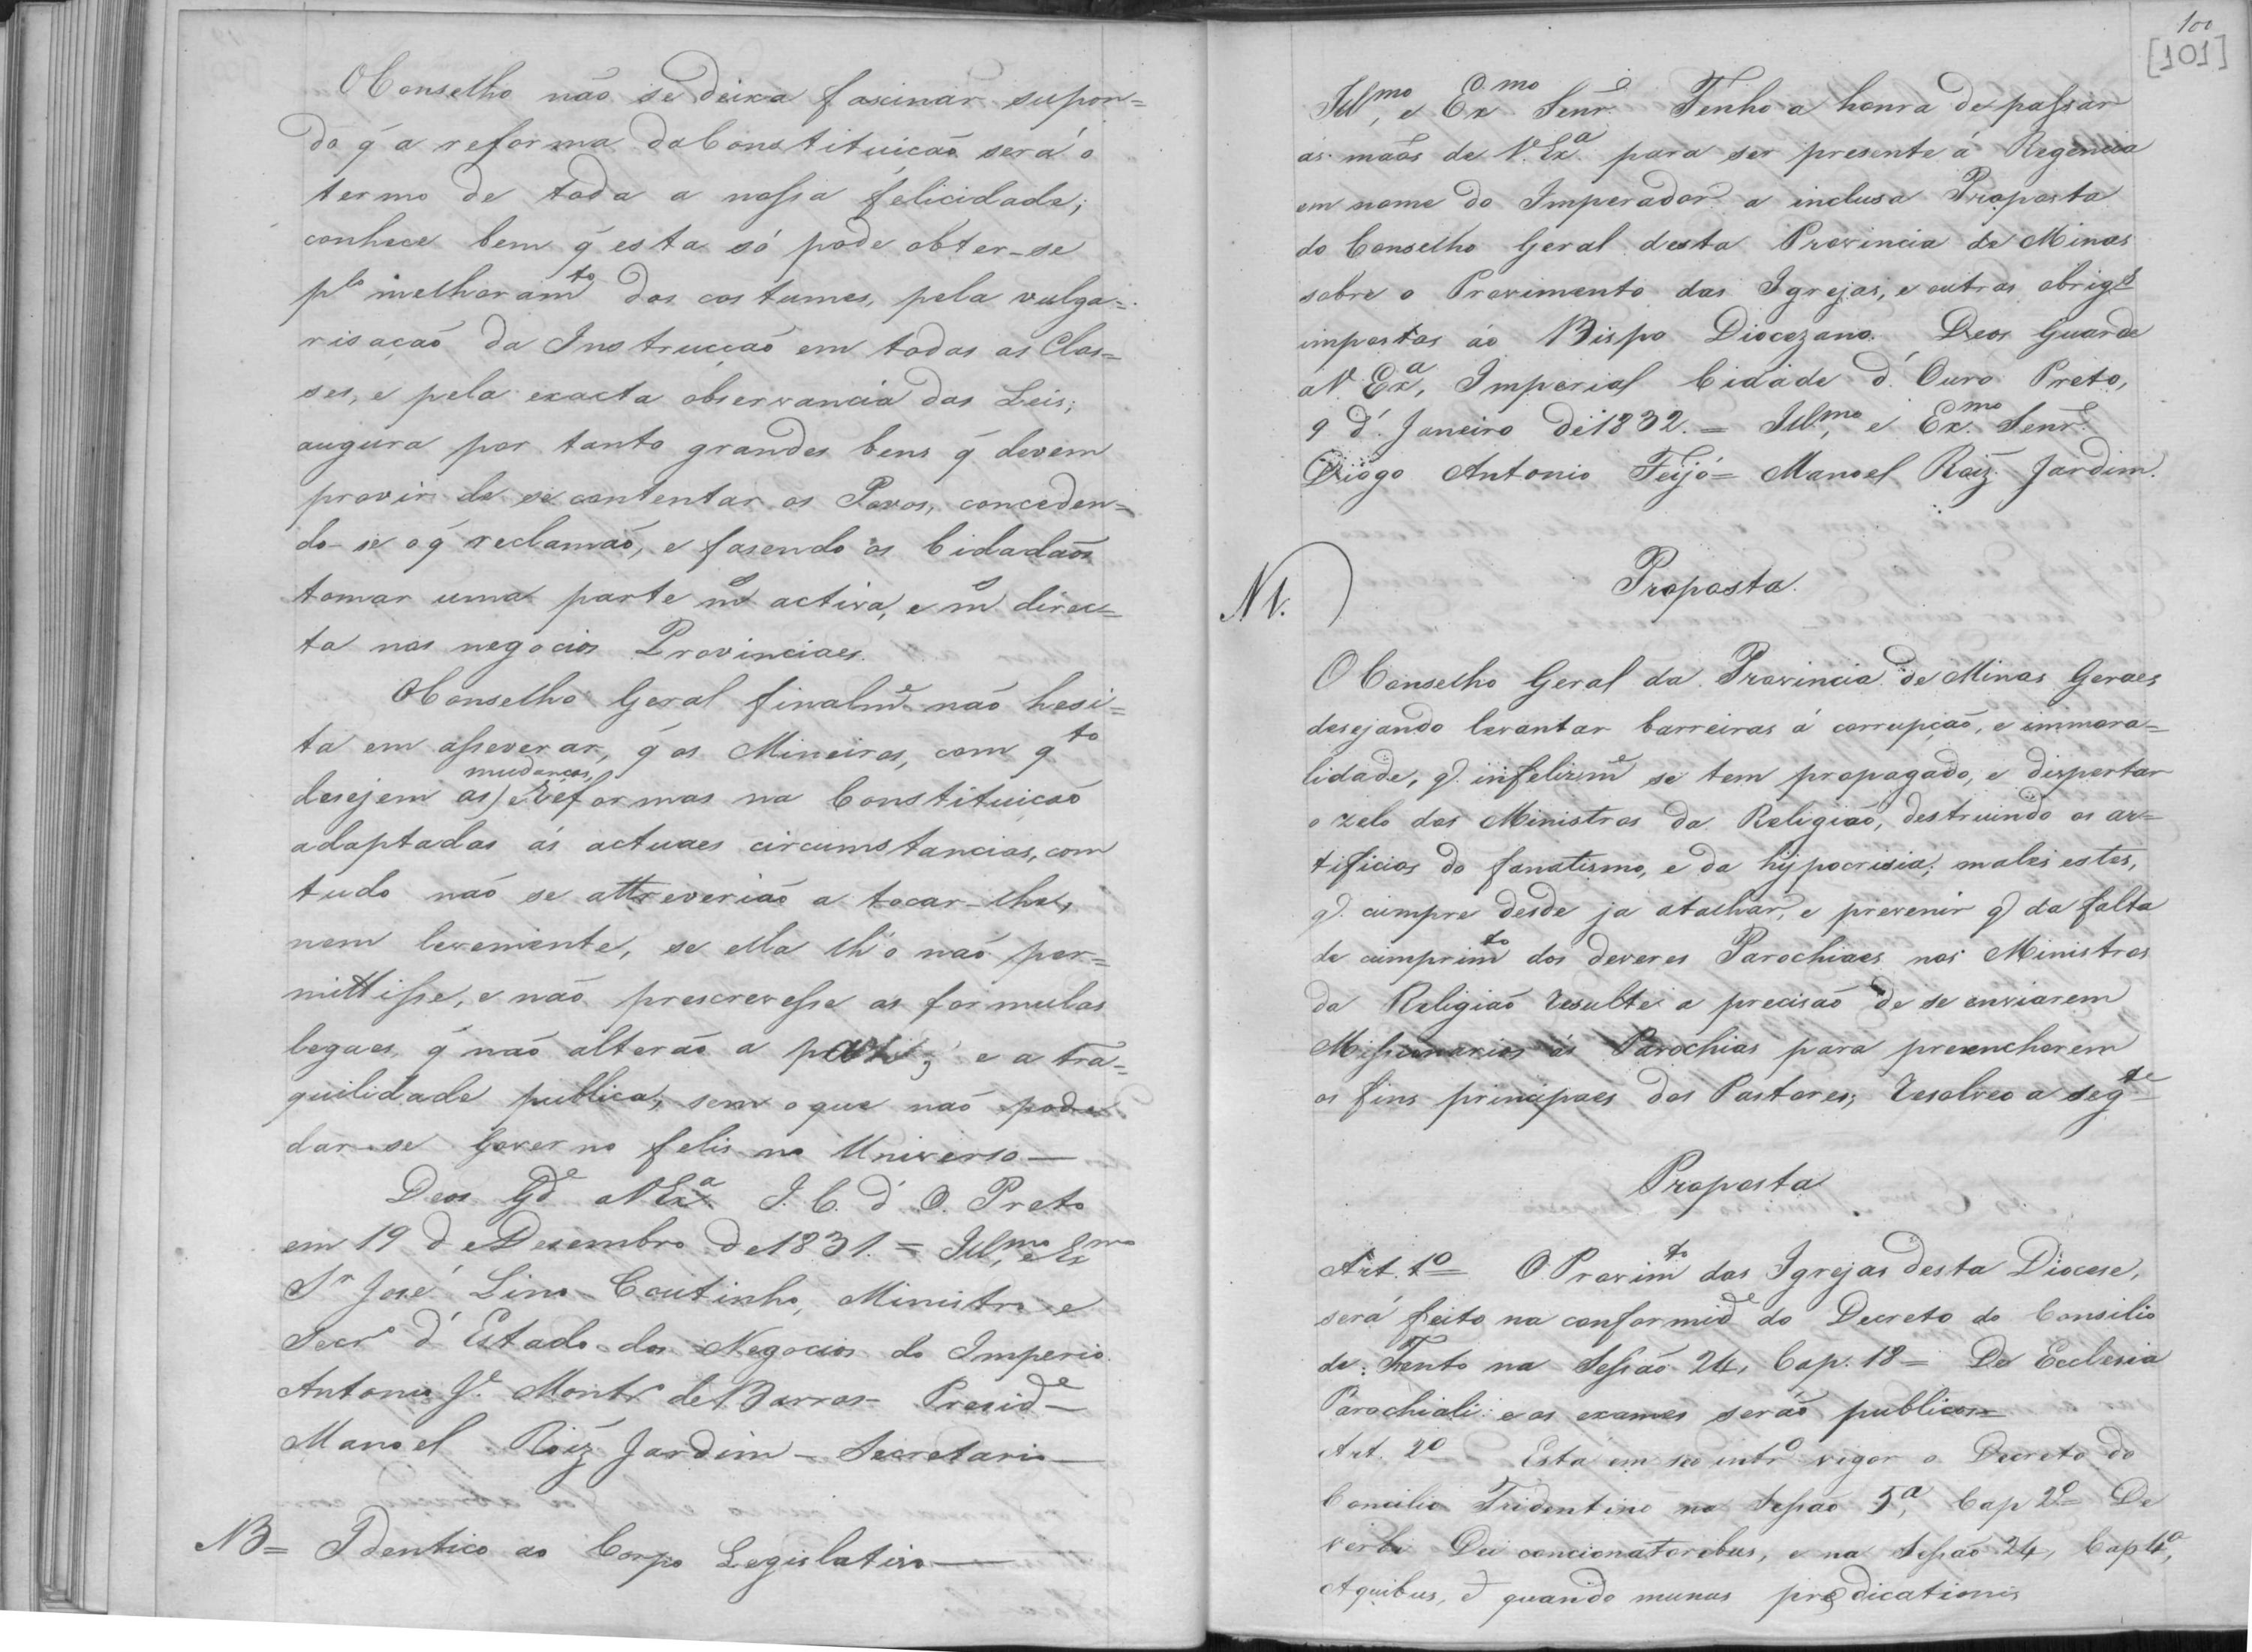 O Conselho não se deixa fascinar supon=
do q̃ a reforma da Constituição será o
termo de toda a nossa felicidade;
conhece bem q̃ esta só pode obter-se
plo melhoramto dos costumes, pela vulga=
risação da Instrucção em todas as Clas=
ses, e pela exacta observancia das Leis;
augura por tanto grandes bens q̃ devem
provir de se contentar os Povos, conceden=
do-se o q̃ reclamão, e fasendo os Cidadãos
tomar uma parte mo activa, e mo direc=
ta nos negocios Provinciaes.
O Conselho Geral finalme não hesi=
ta em asseverar, q̃ os Mineiros, com qto
mudanças,
desejem as) e Reformas na Constituição
adaptadas ás actuaes circumstancias, com
tudo não se attreverião a tocar-lhe,
nem levemente, se ella lh'o não per=
mittisse, e não prescrevesse as formulas
legaes, q̃ não alterão a paz; e a tra=
quilidade publica, sem o que não pode
dar-se Governo felis no Universo—
Deos Gde a V Exa I. C. d' O. Preto
em 19 de Desembro de 1831. = Illmo, e Exmo
Sr José Lino Coutinho, Ministro e
Secro d' Estado dos Negocios do Imperio
Antonio Je Montr de Barros - Preside—
Manoel Roiz Jardim — Secretario—
NB= Identico ao Corpo Legislativo—
100
[101]
Illmo, e Exmo Senr. Tenho a honra de passar
as mãos de V. Exa para ser presente á Regencia
em nome do Imperador a inclusa Proposta
do Conselho Geral desta Provincia de Minas
sobre o Provimento das Igrejas, e outras obriges
impostas áo Bispo Diocezano. Deos Guarde
a V. Exa, Imperial Cidade d' Ouro Preto,
9 d' Janeiro de 1832. = Illmo, e Exmo Senr.
Diogo Antonio Feijó = Manoel Roiz Jardim.
N 1.) Proposta.
O Conselho Geral da Provincia de Minas Geraes
desejando levantar barreiras á corrupção, e immora=
lidade, q. infelizme se tem propagado, e dispertar
o zelo dos Ministros da Religião, destruindo os ar=
tificios do fanatismo, e da hypocrisia; males estes,
q. cumpre desde ja atalhar, e prevenir q da falta
de cumprimto dos deveres Parochiaes nos Ministros
da Religião resulte a precisão de se enviarem
Missionarios ás Parochias para preencherem
os fins principaes dos Pastores; Resolveo a segte
Proposta
Art. 1o= O Provimto das Igrejas desta Diocese,
será feito na conformide do Decreto do Consilio
de Trento na Sessão 24, Cap. 18 = De Ecclesia
Parochiali: e os exames serão publicos=
Art. 2o Está em seo intro vigor o Decreto do
Concilio Tridentino na Sessão 5a, Cap 2o= De
verbi Dei concionatoribus, e na Sessão 24, Cap 4o,
A quibus, et quando munus prædicationis